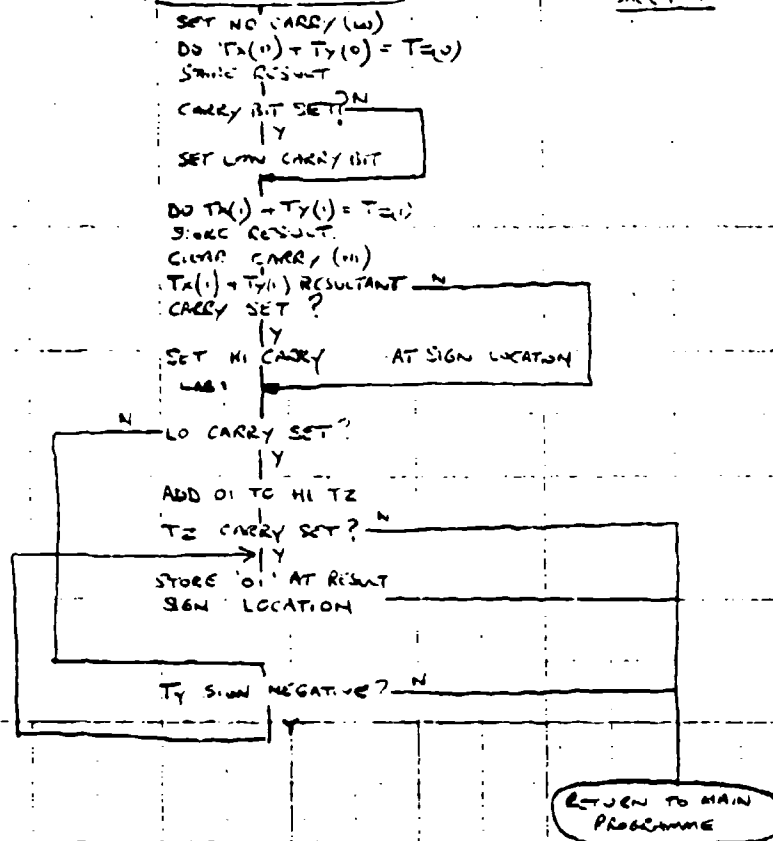 SET NO CARRY (LO)
DO Tx(0) + Ty(0) = Tz(0)
STORE RESULT
CARRY BIT SET? N
Y
SET LOW CARRY BIT
DO Tx(1) + Ty(1) = Tz(1)
STORE RESULT.
CLEAR CARRY (HI)
Tx(1) + Ty(1) RESULTANT N
CARRY SET ?
Y
SET HI CARRY AT SIGN LOCATION
LAB1
N LO CARRY SET?
Y
ADD 01 TO HI TZ
TZ CARRY SET? N
Y
STORE '01' AT RESULT
SIGN LOCATION
Ty SIGN NEGATIVE? N
Y
RETURN TO MAIN
PROGRAMME